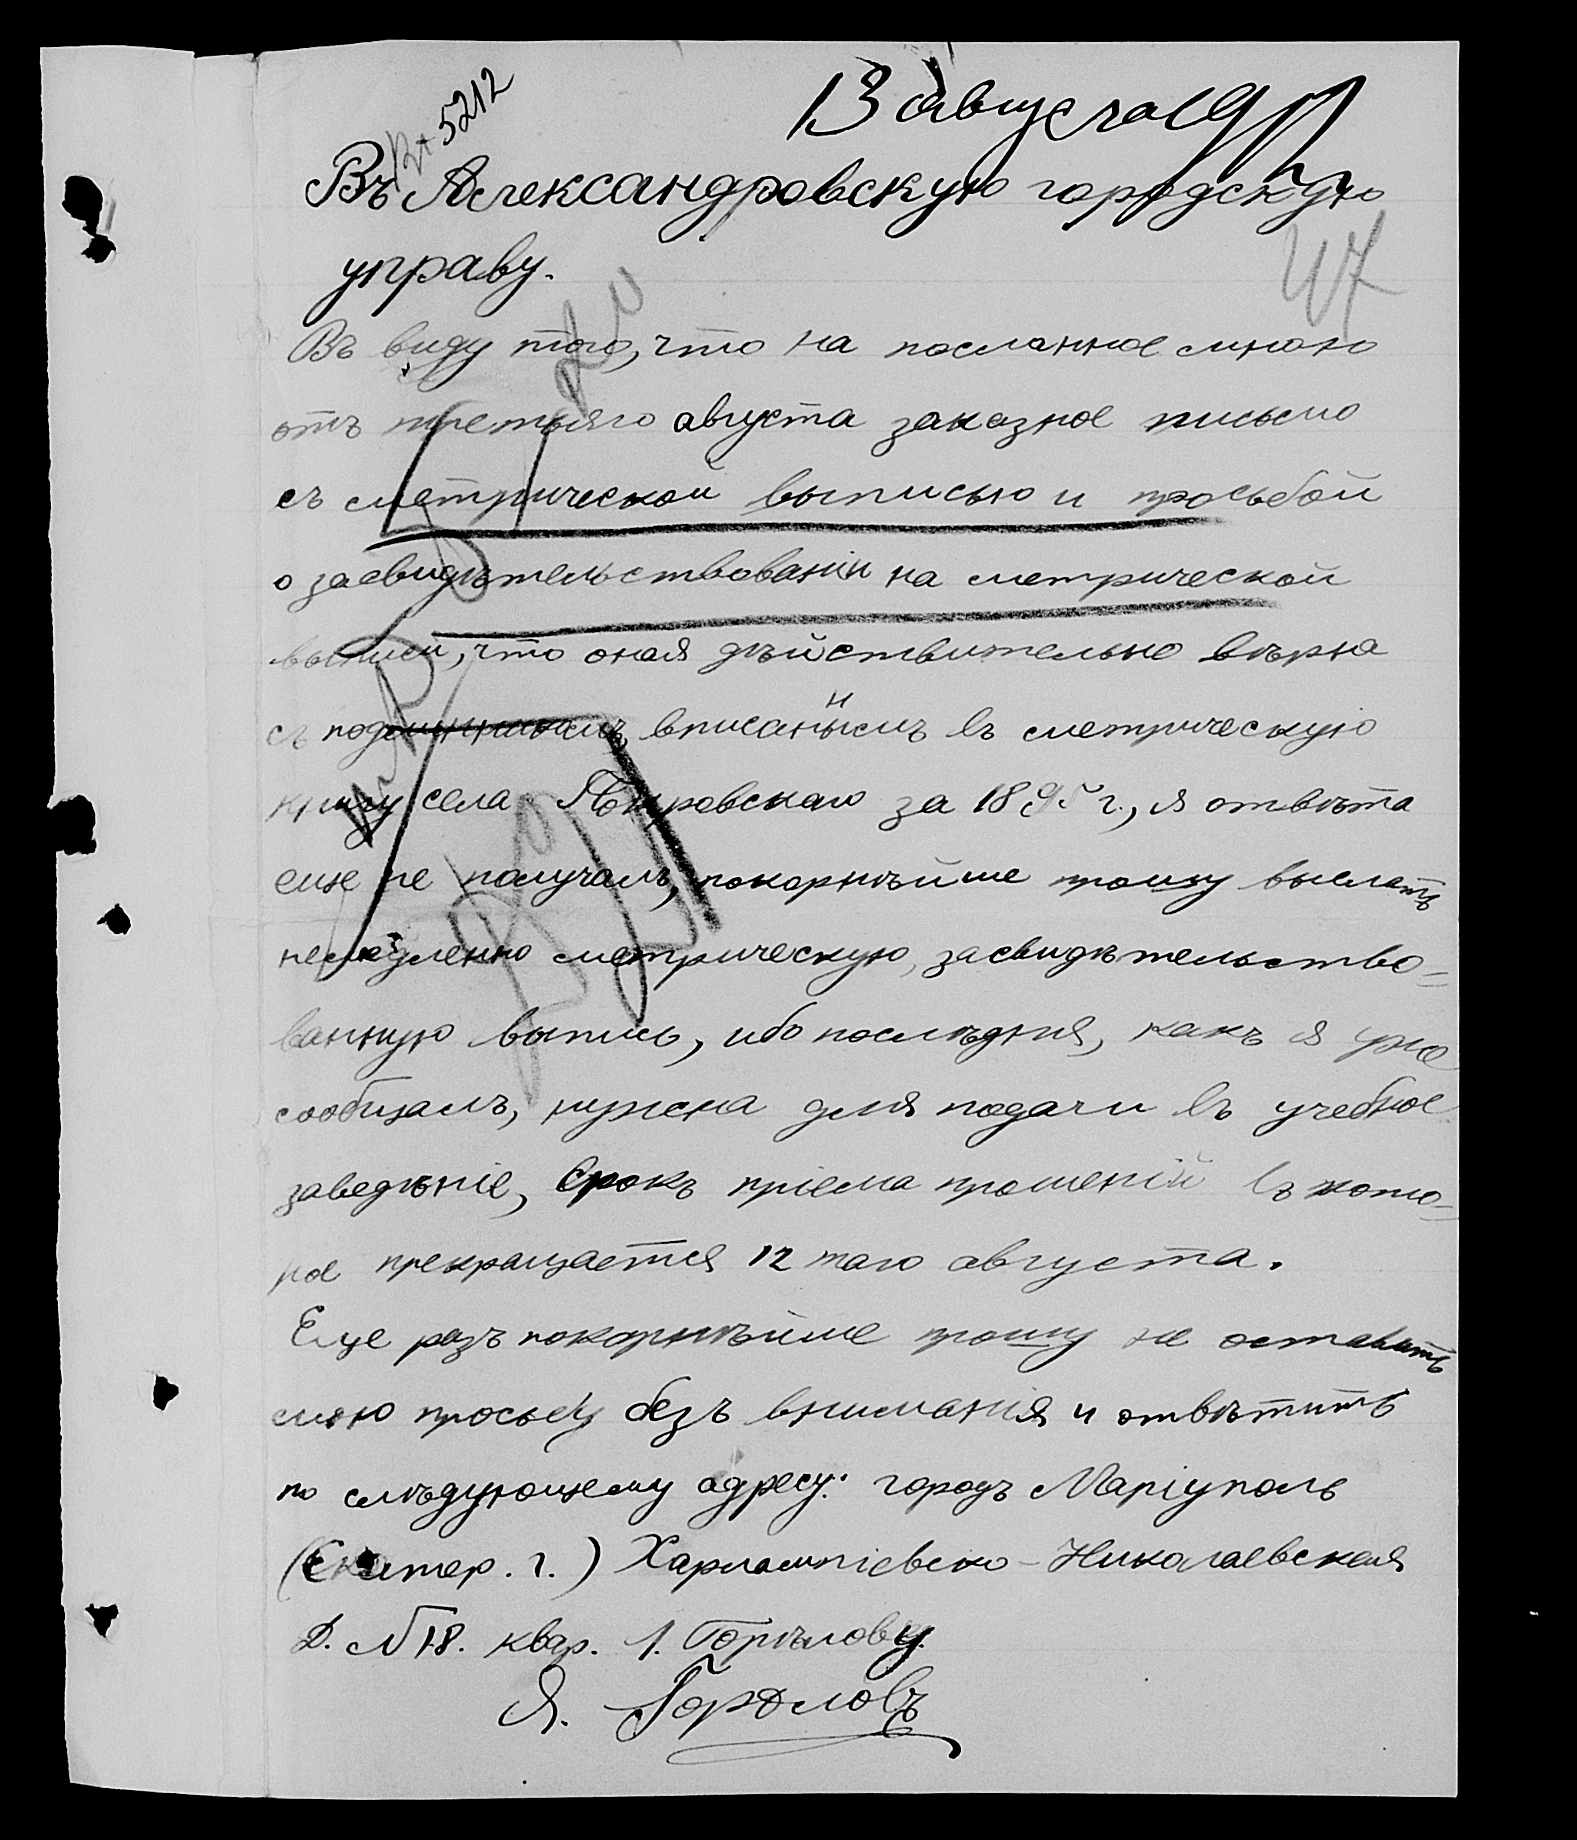 Вх 5212
13 августа 19
Въ Александровскую городскую
управу.
47
Въ виду того, что на посланное мною
отъ третьяго августа заказное письмо
съ метрической выписью и просьбой
о засвидѣтельствованіи на метрической
выписи, что оная дѣйствительно вѣрна
съ подлиннымъ вписаннымъ въ метрическую
книгу села Покровскаго за 1895 г., я отвѣта
еще не получалъ, покорнѣйше прошу выслать
немедленно метрическую, засвидѣтельство-
ванную выпись, ибо послѣдняя, какъ я уже
сообщалъ, нужна для подачи въ учебное
заведеніе, срокъ пріема прошеній въ кото-
рое прекращается 12 таго августа.
Еще разъ покорнѣйше прошу не оставить
мою просьбу безъ вниманія и отвѣтить
по слѣдующему адресу: городъ Маріуполь
(Екатер. г.) Харлампіевско-Николаевская
Д. № 18. квар. 1. Горѣлову.
Я. Горѣловъ